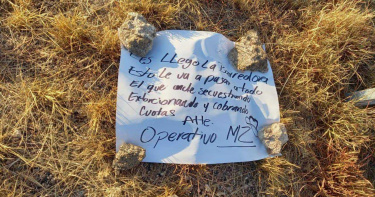 Es LLego La Barredora
Esto Le va a pasar a todo
El que ande secuestrando
Extorcionando y cobrando
Cuotas
Atte.
Operativo MZ